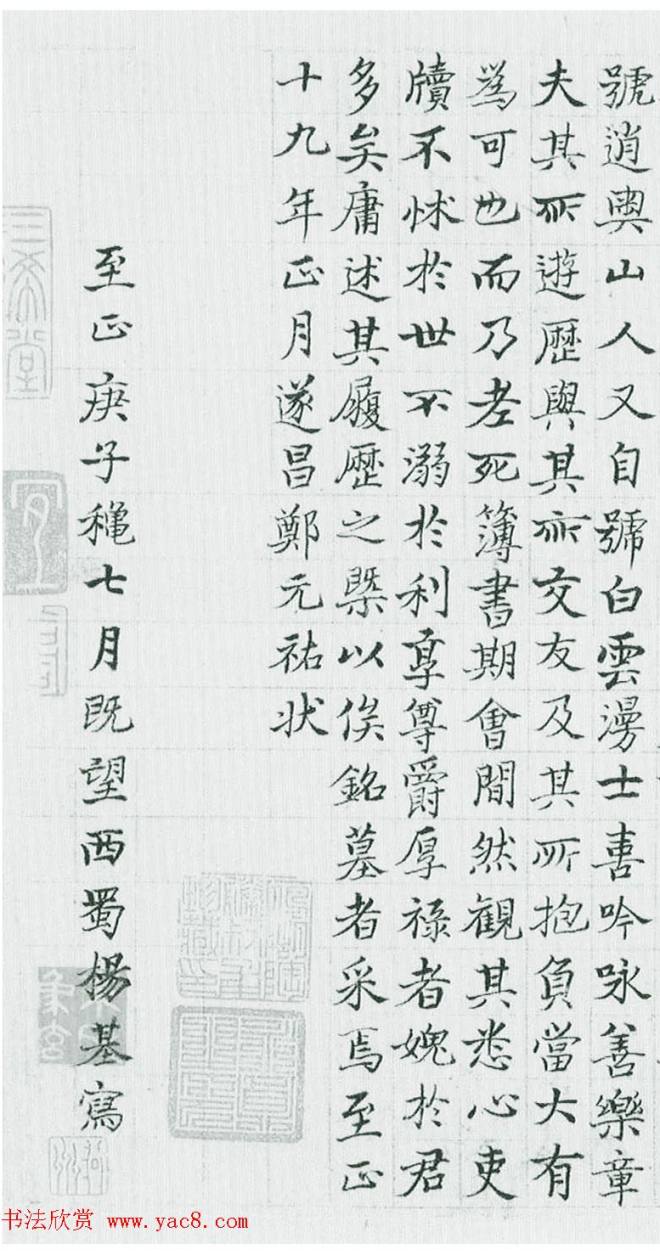 號逍輿山人又自號白雲澷士喜吟咏善樂章
夫其所遊歷與其所交友及其所抱負當大有
為可也而乃老死簿書期會間然觀其悉心吏
牘不怵於世不溺於利享尊爵厚祿者媿於君
多矣庸述其履歷之槩以俟銘墓者采焉至正
十九年正月遂昌鄭元祐状
至正庚子穐七月既望西蜀楊基寫
三希堂
书法欣赏 www.yac8.com